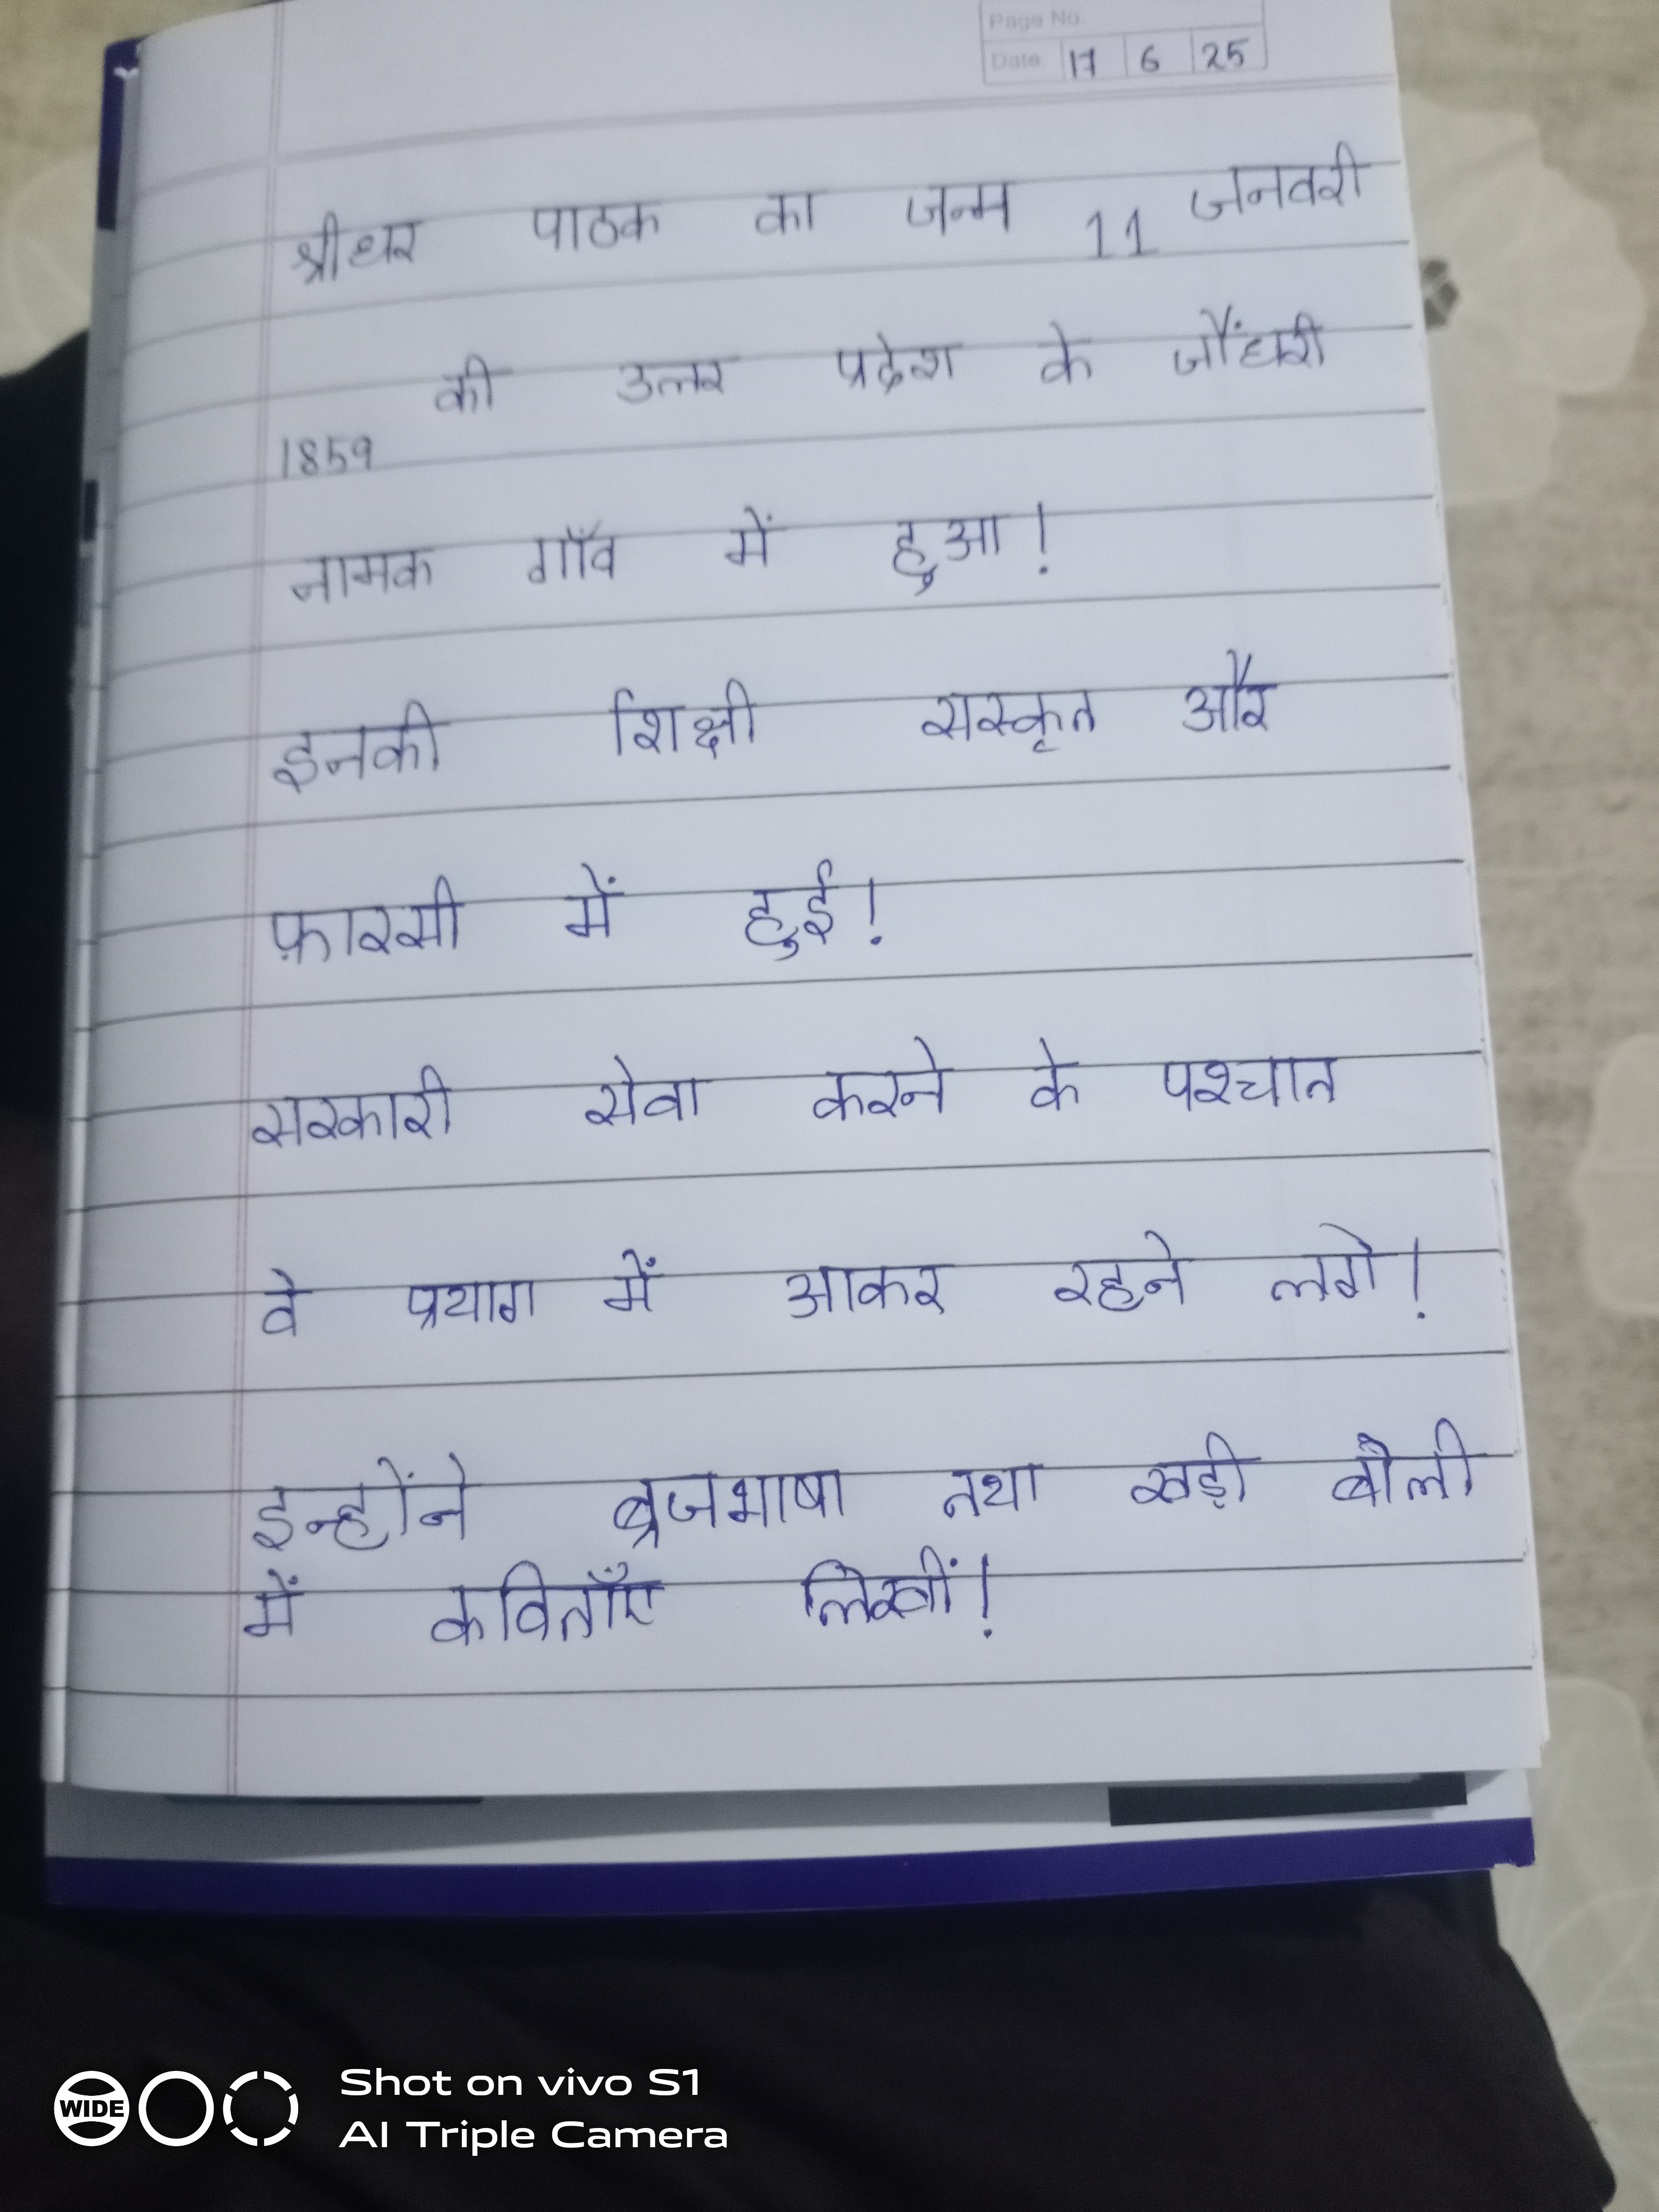 Page No.
Date. 17 6 25
श्रीधर पाठक का जन्म 11 जनवरी
1859 की उत्तर प्रदेश के जौंधरी
नामक गाँव में हुआ!
इनकी शिक्षी सस्कृत और
फ़ारसी में हुई!
सरकारी सेवा करने के पश्चात
वे प्रयाग में आकर रहने लगे!
इन्होंने ब्रजभाषा तथा खड़ी बोली
में कविताँए लिखीं!
WIDE
Shot on vivo S1
AI Triple Camera